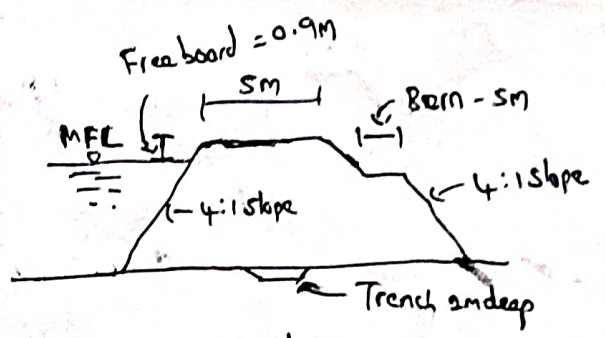 Freeboard = 0.9m
5m
Berm - 5m
MFL
4:1 slope
4:1 slope
Trench 2m deep